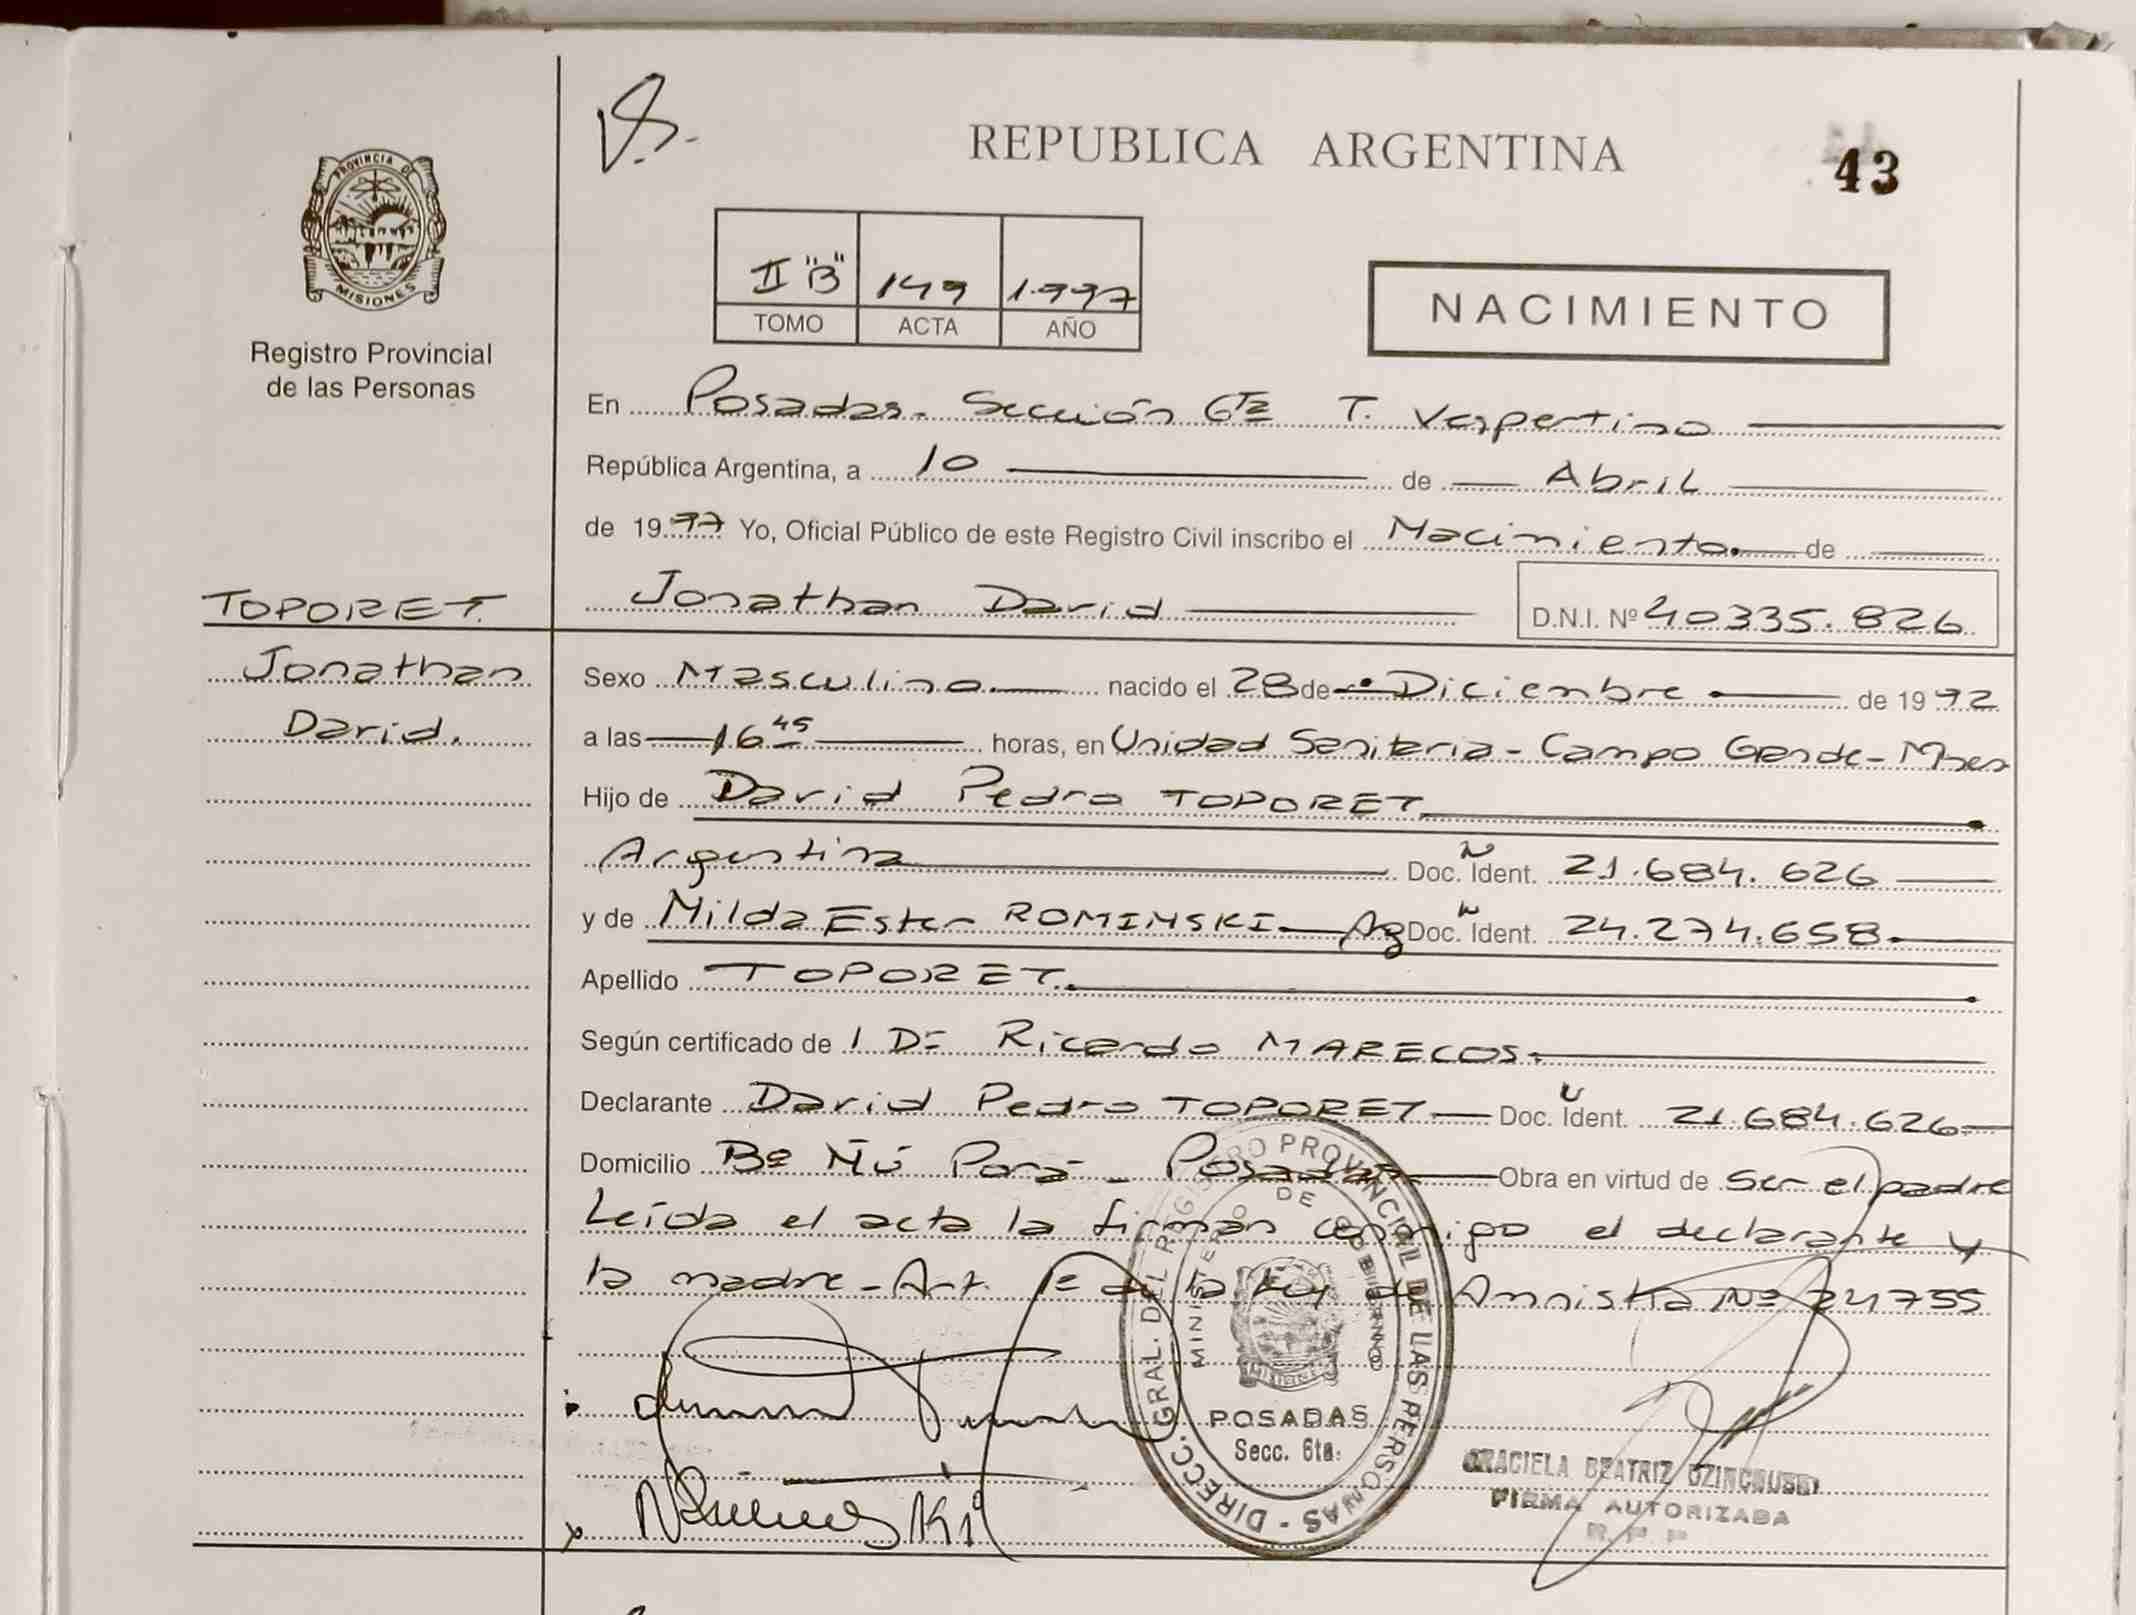 REPUBLICA ARGENTINA
43
PROVINCIA DE
MISIONES
Registro Provincial
de las Personas
II "B" 149 1.997
TOMO ACTA AÑO
NACIMIENTO
En Posadas. Sección 6ta T. Vespertino
República Argentina, a 10 de Abril
de 1997 Yo, Oficial Público de este Registro Civil inscribo el Nacimiento. de
TOPORET.
Jonathan David
D.N.I. Nº 40335.826
Jonathan
David.
Sexo Masculino nacido el 28 de Diciembre de 1992
a las 16 45 horas, en Unidad Sanitaria - Campo Grande - Mnes
Hijo de David Pedro TOPORET
Argentina Doc. Ident. 21.684.626
y de Nilda Ester ROMINSKI Arg Doc. Ident. 24.274.658
Apellido TOPORET.
Según certificado de 1 Dr Ricardo MARECOS.
Declarante David Pedro TOPORET Doc. Ident. 21.684.626
Domicilio Bº Ñú Porá - Posadas Obra en virtud de Ser el padre
Leída el acta la firman conmigo el declarante y
la madre - Art. 1º de la Ley de Amnistía Nº 24755
DIRECC. GRAL. DEL REGISTRO PROVINCIAL DE LAS PERSONAS
MINISTERIO DE GOBIERNO
POSADAS
Secc. 6ta.
GRACIELA BEATRIZ
FIRMA AUTORIZADA
R. P. P.